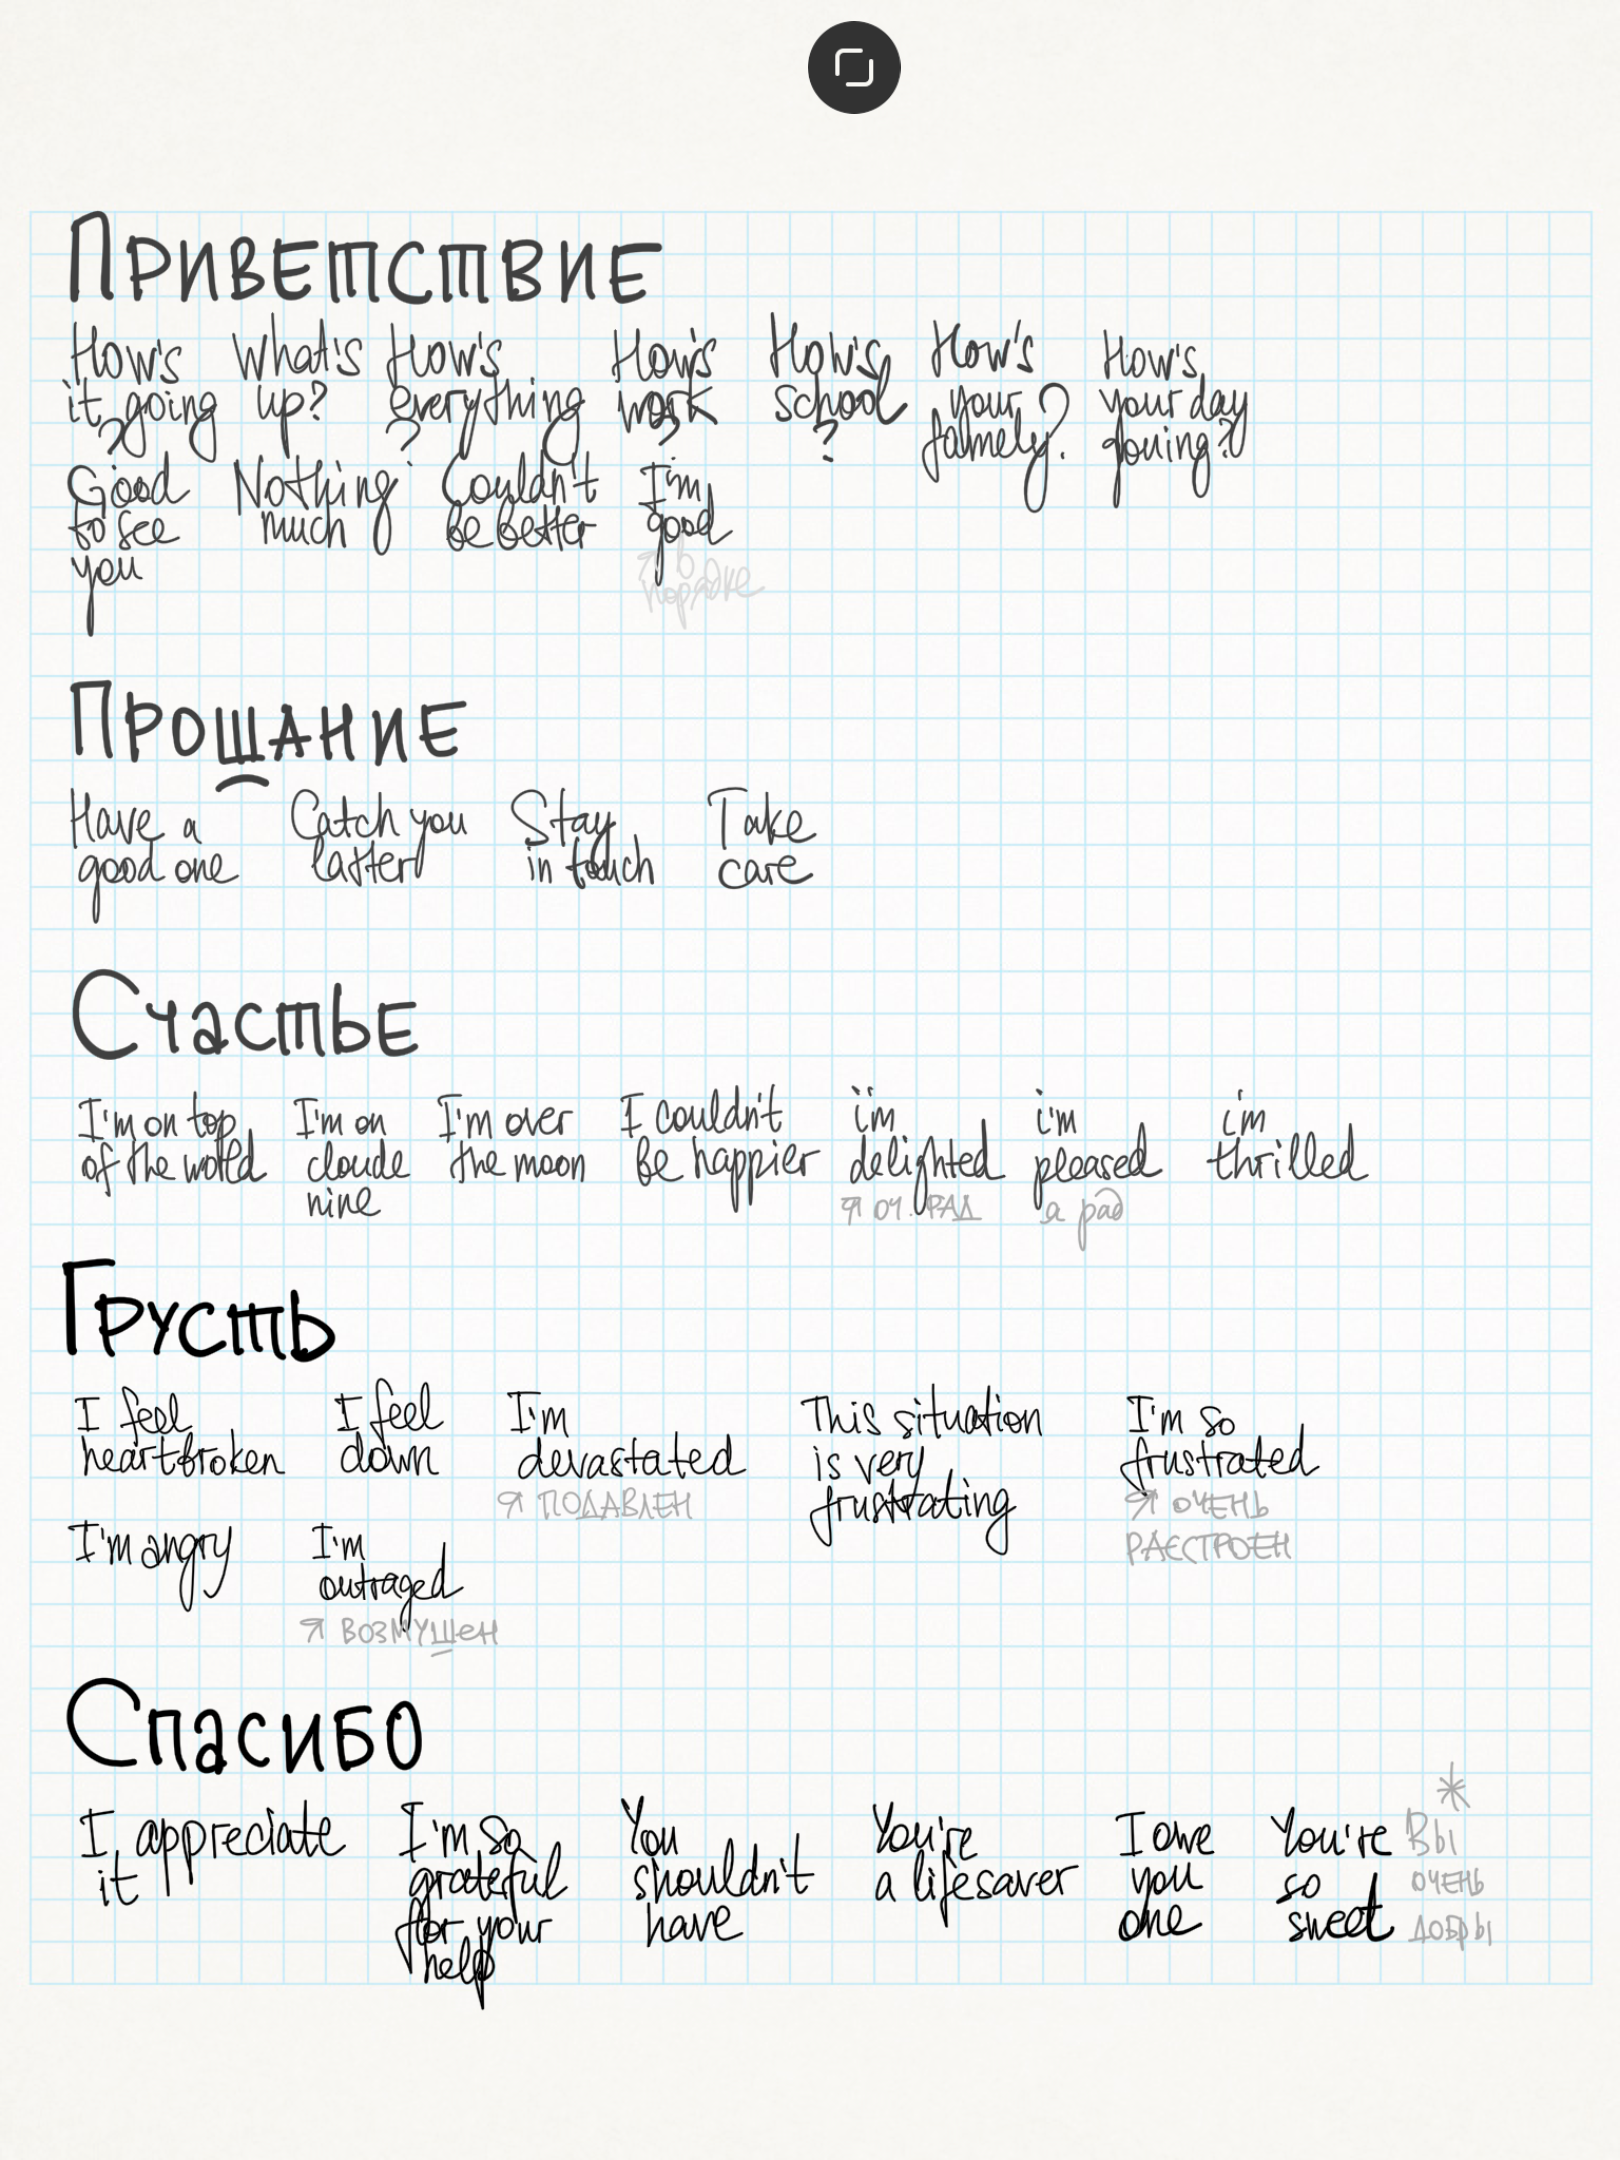 Приветствие
How's What's How's How's How's How's How's
it going up? everything work school your your day
? ? ? ? famely? gouing?
Good Nothing Couldn't I'm
to see much be better good
you
я в
порядке
Прошание
Have a Catch you Stay Take
good one latter in touch care
Счастье
I'm on top I'm on I'm over I couldn't i'm i'm i'm
of the world cloude the moon be happier delighted pleased thrilled
nine Я оч. РАД я рад
Грусть
I feel I feel I'm This situation I'm so
heartbroken down devastated is very frustrated
Я ПОДАВЛЕН frustrating Я ОЧЕНЬ
РАССТРОЕН
I'm angry I'm
outraged
Я ВОЗМУШеН
Спасибо
I appreciate I'm so You You're I owe You're Вы
it grateful shouldn't a lifesaver you so очень
for your have one sweet добры
help